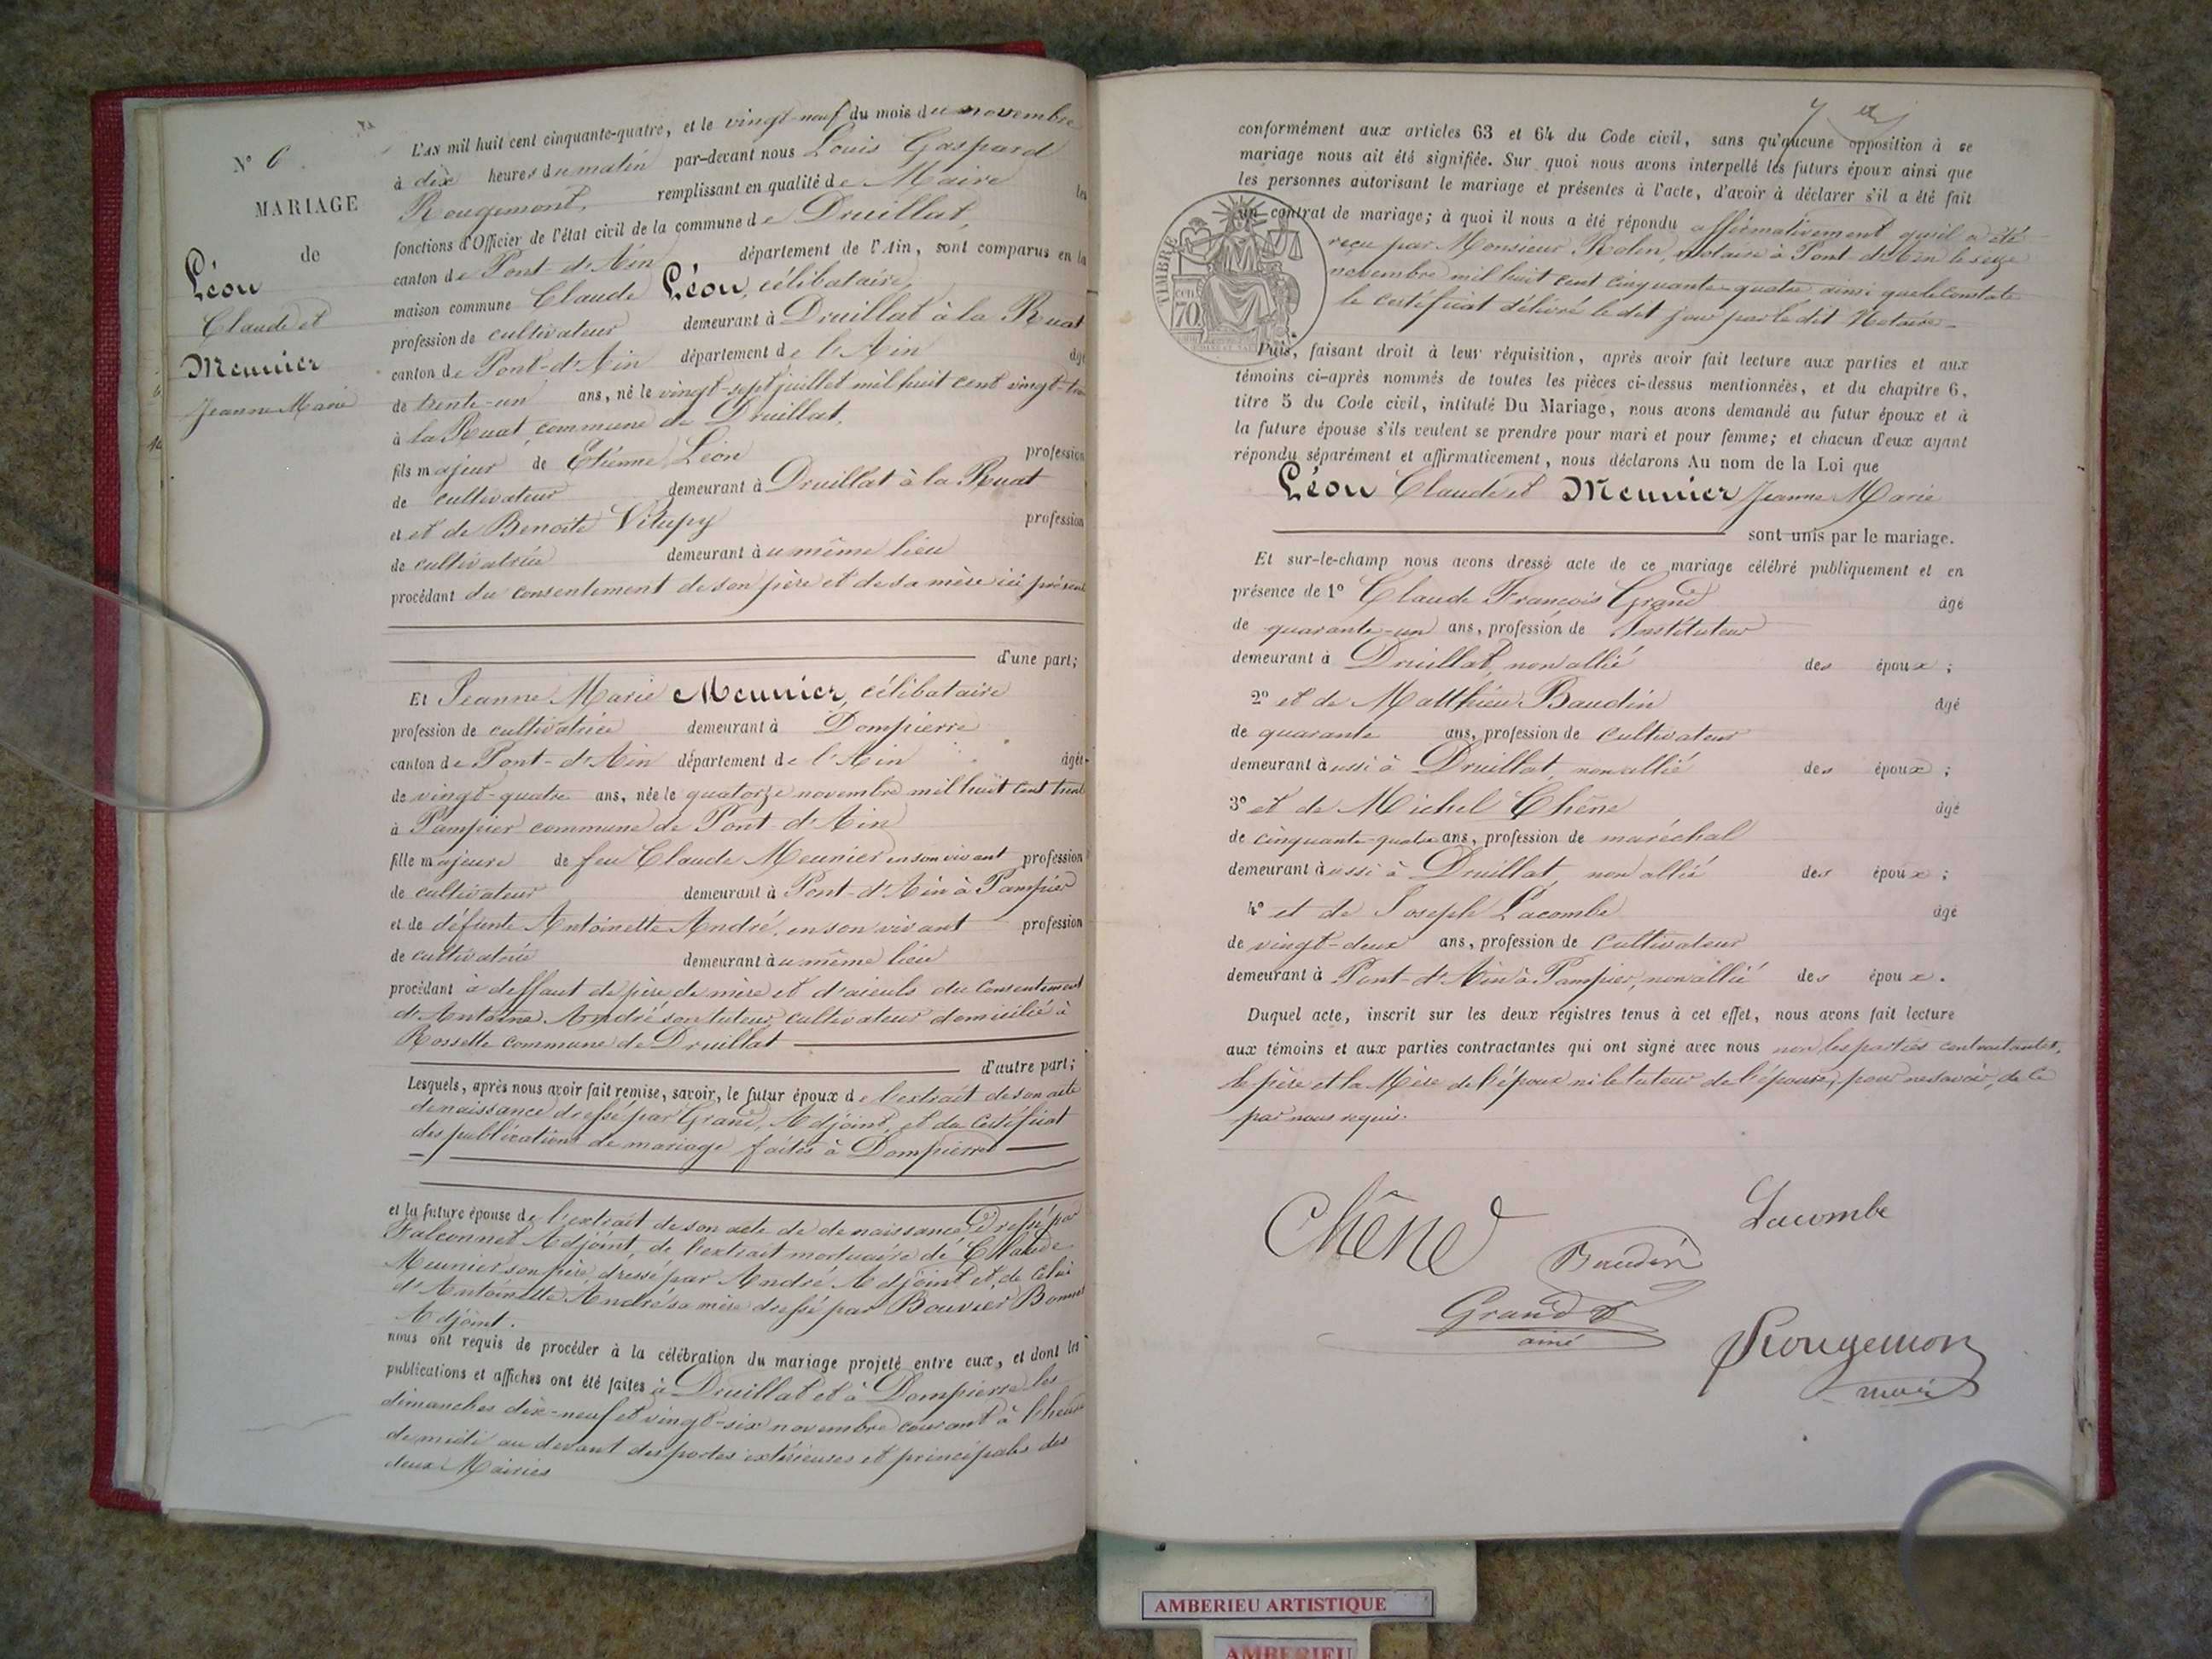 N° 6
MARIAGE
de
Léon
Claude et
Meunier
Jeanne Marie
L'AN mil huit cent cinquante-quatre, et le vingt-neuf du mois du novembre
à dix heures du matin par-devant nous Louis Gaspard
Rougemont, remplissant en qualité de Maire les
fonctions d'Officier de l'état civil de la commune de Druillat,
canton de Pont-d'Ain département de l'Ain, sont comparus en la
maison commune Claude Léon, célibataire,
profession de cultivateur demeurant à Druillat à la Ruat
canton de Pont-d'Ain département de l'Ain âgé
de trente-un ans, né le vingt-sept juillet mil huit cent vingt-trois
à la Ruat, commune de Druillat,
fils majeur de Etienne Léon profession
de cultivateur demeurant à Druillat à la Ruat
et de Benoite profession
de cultivatrice demeurant au même lieu
procédant du consentement de son père et de sa mère ici présent
d'une part;
Et Jeanne Marie Meunier, célibataire
profession de cultivatrice demeurant à Dompierre
canton de Pont-d'Ain département de l'Ain âgée
de vingt-quatre ans, née le quatorze novembre mil huit cent trente
à Pampier commune de Pont-d'Ain
fille majeure de feu Claude Meunier en son vivant profession
de cultivateur demeurant à Pont-d'Ain à Pampier
et de défunte Antoinette André, en son vivant profession
de cultivatrice demeurant au même lieu
procédant à deffaut de père de mère et d'aieuls du consentement
d'Antoine André son tuteur, cultivateur domicilié à
Rossette commune de Druillat
d'autre part;
Lesquels, après nous avoir fait remise, savoir, le futur époux de l'extrait de son acte
de naissance dressé par Grand, Adjoint, et du certificat
des publications de mariage faites à Dompierre
et la future épouse de l'extrait de son acte de de naissance dressé par
Falconnet Adjoint, de l'extrait mortuaire de Claude
Meunier son père, dressé par André Adjoint et de celui
d'Antoinette André sa mère dressé par Bouvier Bonnet
Adjoint.
nous ont requis de procéder à la célébration du mariage projeté entre eux, et dont les
publications et affiches ont été faites à Druillat et à Dompierre les
dimanches dix-neuf et vingt-six novembre courant à l'heure
de midi au devant des portes extérieures et principales des
deux Mairies
7
conformément aux articles 63 et 64 du Code civil, sans qu'aucune opposition à ce
mariage nous ait été signifiée. Sur quoi nous avons interpellé les futurs époux ainsi que
les personnes autorisant le mariage et présentes à l'acte, d'avoir à déclarer s'il a été fait
un contrat de mariage; à quoi il nous a été répondu affirmativement qu'il a été
reçu par Monsieur Rolin, notaire à Pont-d'Ain le seize
novembre mil huit cent cinquante-quatre ainsi que le constate
le certificat délivré le dit jour par le dit Notaire
TIMBRE
70
Puis, faisant droit à leur réquisition, après avoir fait lecture aux parties et aux
témoins ci-après nommés de toutes les pièces ci-dessus mentionnées, et du chapitre 6,
titre 5 du Code civil, intitulé Du Mariage, nous avons demandé au futur époux et à
la future épouse s'ils veulent se prendre pour mari et pour femme; et chacun d'eux ayant
répondu séparément et affirmativement, nous déclarons Au nom de la Loi que
Léon Claude et Meunier Jeanne Marie
sont unis par le mariage.
Et sur-le-champ nous avons dressé acte de ce mariage célébré publiquement et en
présence de 1° Claude François Grand âgé
de quarante-un ans, profession de Instituteur
demeurant à Druillat, non allié des époux;
2° et de Matthieu Baudin âgé
de quarante ans, profession de cultivateur
demeurant aussi à Druillat, non allié des époux;
3° et de Michel Chêne âgé
de cinquante-quatre ans, profession de maréchal
demeurant aussi à Druillat, non allié des époux;
4° et de Joseph Lacombe âgé
de vingt-deux ans, profession de cultivateur
demeurant à Pont-d'Ain à Pampier, non allié des époux.
Duquel acte, inscrit sur les deux registres tenus à cet effet, nous avons fait lecture
aux témoins et aux parties contractantes qui ont signé avec nous non les parties contractantes,
le père et la Mère de l'époux ni le tuteur de l'épouse, pour ne savoir, de ce
par nous requis.
Chêne
Lacombe
Baudin
Grand
ainé
Rougemont
maire
AMBERIEU ARTISTIQUE
AMBERIEU